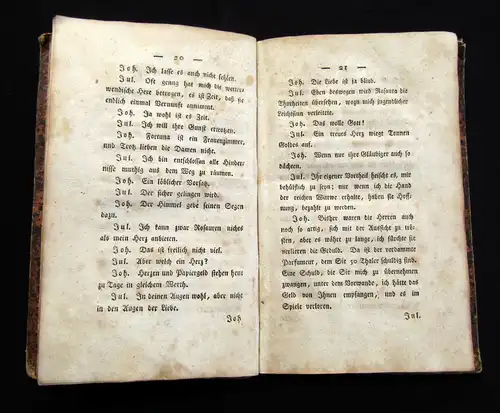 — 20 —
Joh. Ich lasse es auch nicht fehlen.
Jul. Oft genug hat mich die wetter-
wendische Hexe betrogen, es ist Zeit, daß sie
endlich einmal Vernunft annimmt.
Joh. Ja wohl ist es Zeit.
Jul. Ich will ihr Gunst
Joh. Fortuna ist ein Frauenzimmer,
und Trotz lieben die Damen nicht.
Jul. Ich bin entschlossen alle Hinder-
nisse muthig aus dem Weg zu räumen.
Joh. Ein löblicher Vorsatz.
Jul. Der sicher gelingen wird.
Joh. Der Himmel gebe seinen Segen
dazu.
Jul. Ich kann zwar Rosauren nichts
als mein Herz anbieten.
Joh. Das ist freilich nicht viel.
Jul. Aber welch ein Herz?
Joh. Herzen und Papiergeld stehen heut
zu Tage in gleichem Werth.
Jul. In deinen Augen wohl, aber nicht
in den Augen der Liebe.
Joh
— 21 —
Joh. Die Liebe ist ja blind.
Jul. Eben deswegen wird Rosaura die
Thorheiten übersehen, wozu mich jugendlicher
Leichtsinn verleitete.
Joh. Das wolle Gott!
Jul. Ein treues Herz wiegt Tonnen
Goldes auf.
Joh. Wenn nur ihre Gläubiger auch so
dächten.
Jul. Ihr eigener Vortheil heischt es, mir
behülflich zu seyn; nur wenn ich die Hand
der reichen Wittwe erhalte, haben sie Hoff-
nung, bezahlt zu werden.
Joh. Bisher waren die Herren auch
noch so artig, sich mit der Aussicht zu trö-
sten, aber es währt zu lange, ich fürchte sie
verlieren die Geduld. Da ist der verdammte
Parfumeur, dem Sie 50 Thaler schuldig sind.
Eine Schuld, die Sie mich zu übernehmen
zwangen, unter dem Vorwande, ich hätte das
Geld von Ihnen empfangen, und es im
Spiele verloren.
Jul.